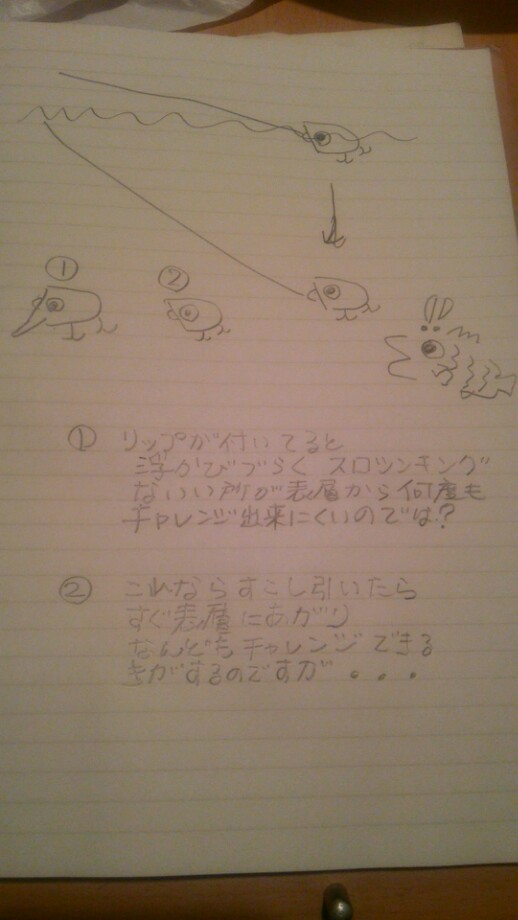 ①
②
① リップが付いてると
浮かびづらく スロシンキング
ないい所が表層から何度も
チャレンジ出来にくいのでは?
② これならすこし引いたら
すぐ表層にあがり
なんどもチャレンジできる
きがするのですが・・・